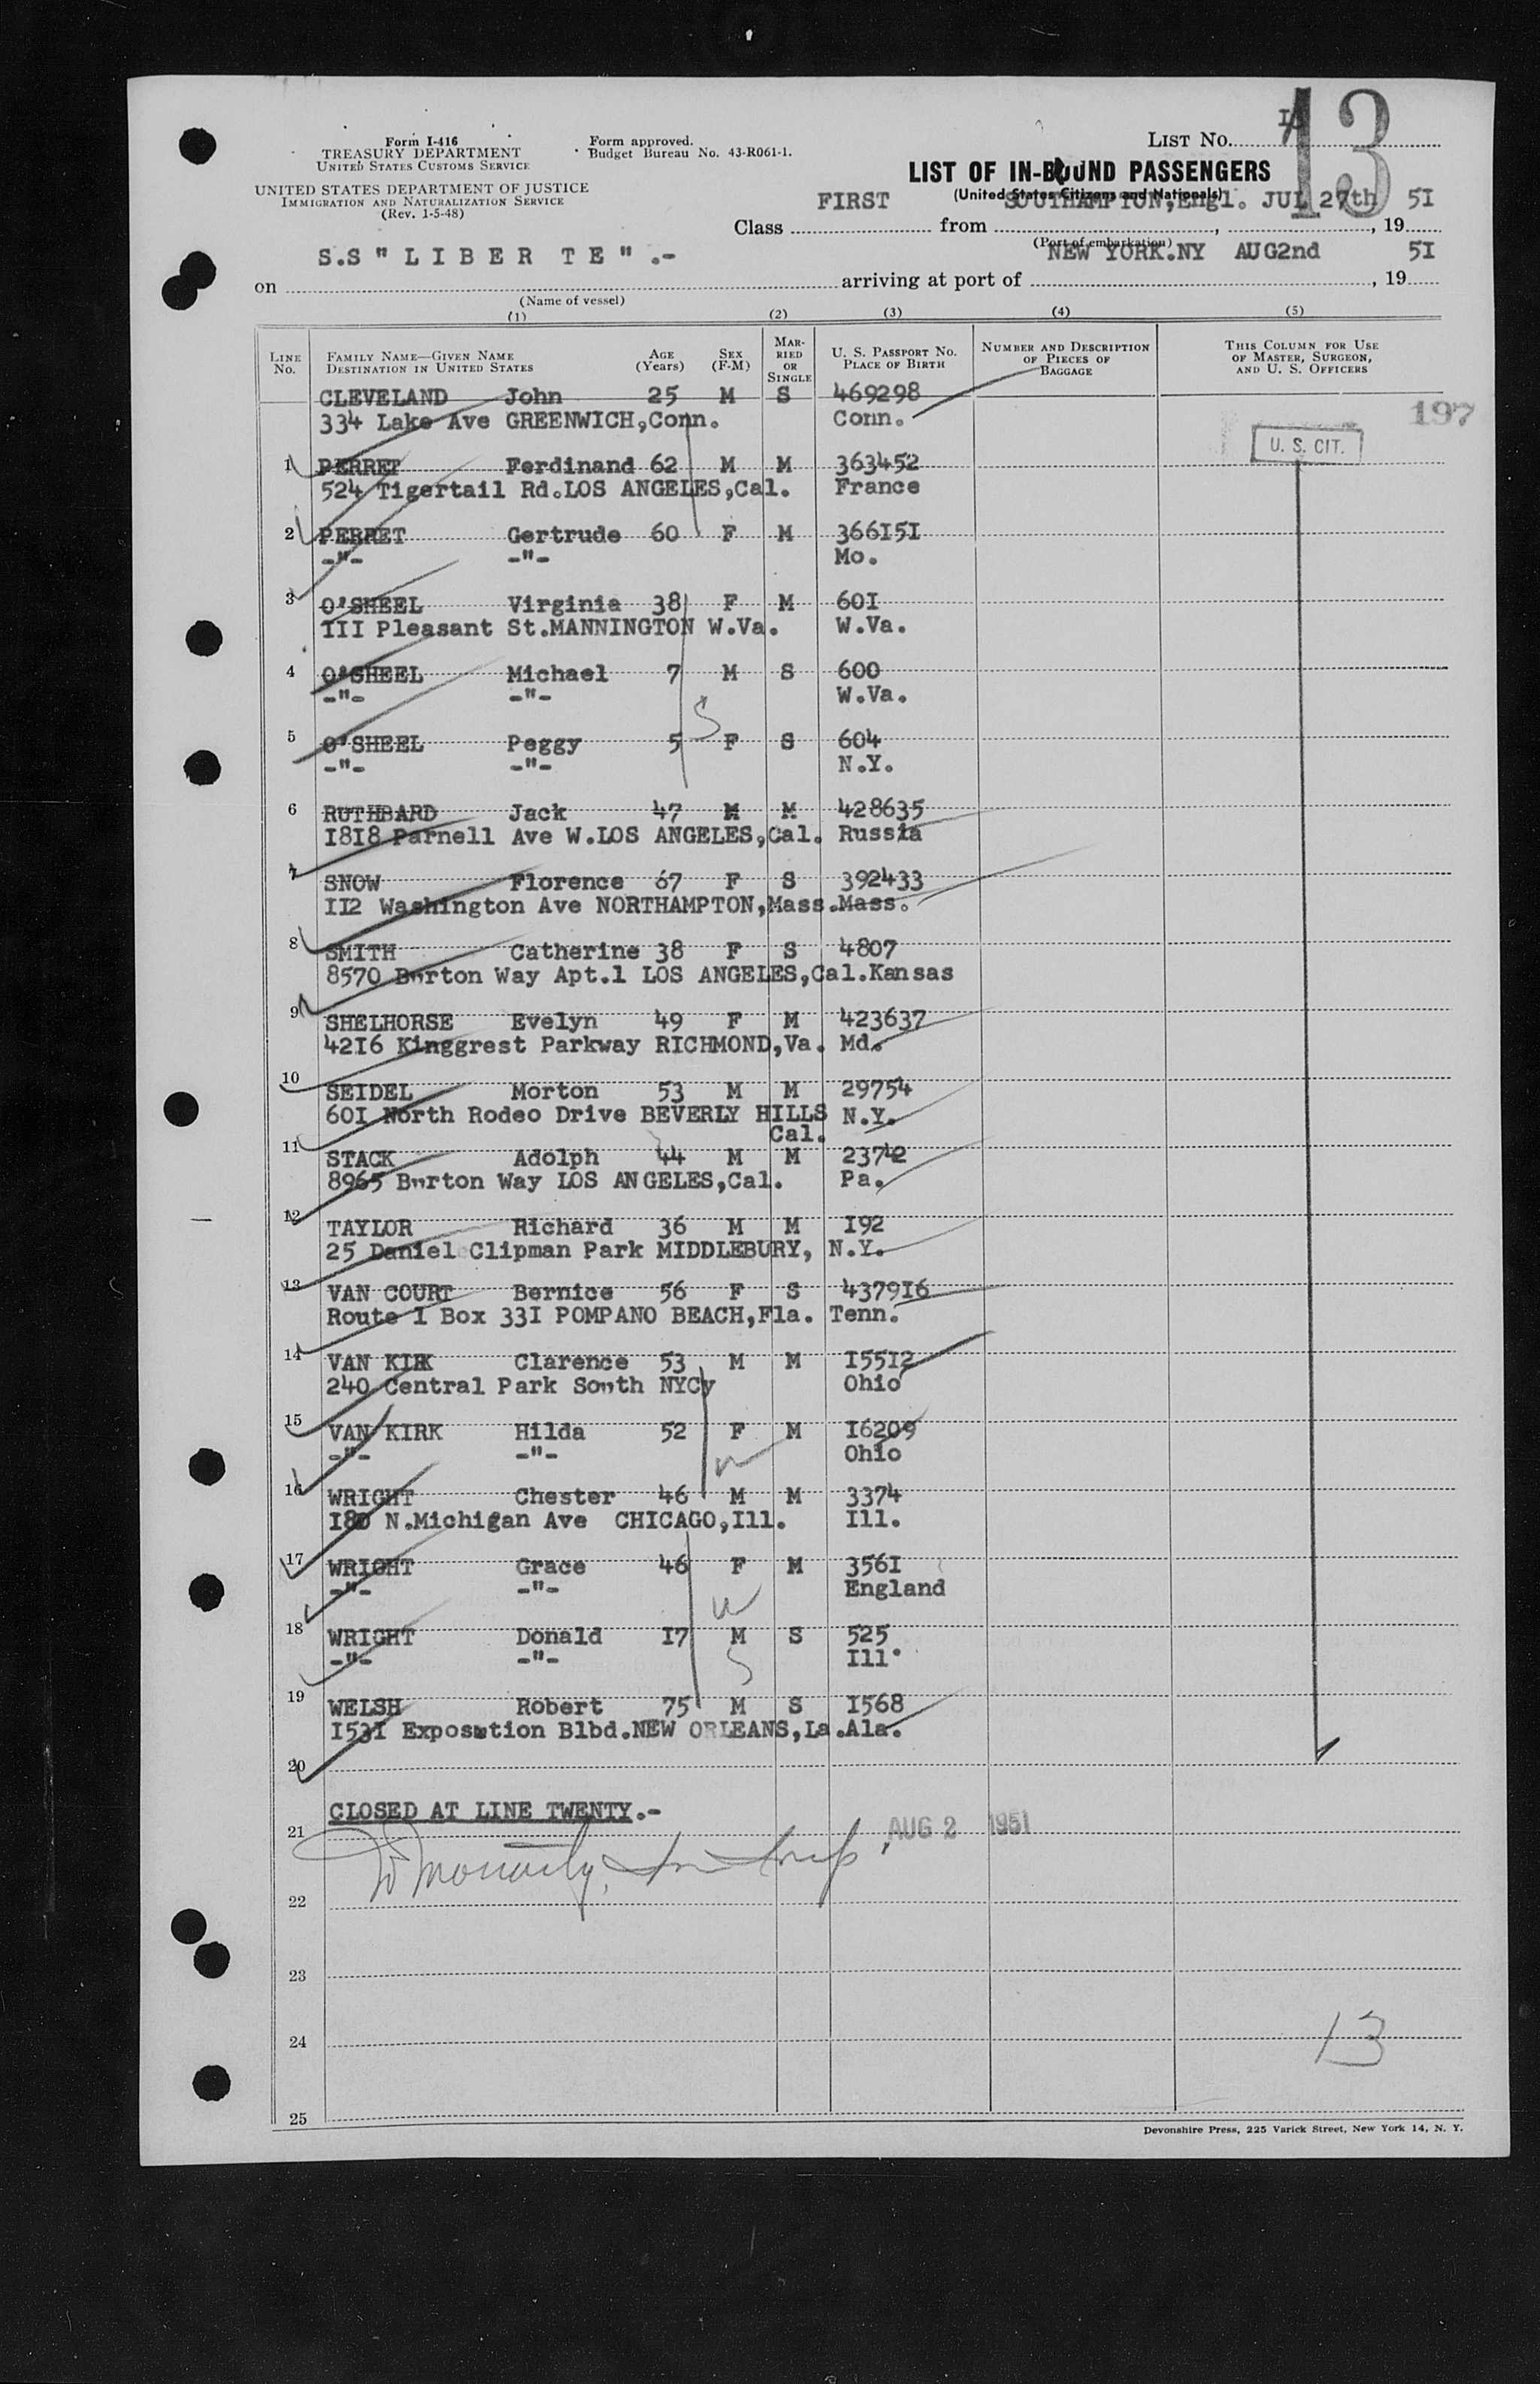 Form I-416
TREASURY DEPARTMENT
UNITED STATES CUSTOMS SERVICE
UNITED STATES DEPARTMENT OF JUSTICE
IMMIGRATION AND NATURALIZATION SERVICE
(Rev. 1-5-48)
Form approved.
Budget Bureau No. 43-R061-1.
LIST No. 13
LIST OF IN-BOUND PASSENGERS
(United States Citizens and Nationals)
Class FIRST from SOUTHAMPTON,Engl. JUL 27th, 19 5I
(Port of embarkation)
on S.S " L I B E R T E " .- arriving at port of NEW YORK.NY AUG2nd, 19 5I
(Name of vessel)
(1) (2) (3) (4) (5)
LINE No. FAMILY NAME—GIVEN NAME DESTINATION IN UNITED STATES AGE (Years) SEX (F-M) MARRIED OR SINGLE U. S. PASSPORT NO. PLACE OF BIRTH NUMBER AND DESCRIPTION OF PIECES OF BAGGAGE THIS COLUMN FOR USE OF MASTER, SURGEON, AND U. S. OFFICERS
CLEVELAND John 25 M S 469298
334 Lake Ave GREENWICH,Conn. Conn. 197
U. S. CIT.
1 PERRET Ferdinand 62 M M 363452
524 Tigertail Rd.LOS ANGELES,Cal. France
2 PERRET Gertrude 60 F M 366I5I
-"- -"- Mo.
3 O'SHEEL Virginia 38 F M 60I
III Pleasant St.MANNINGTON W.Va. W.Va.
4 O'SHEEL Michael 7 M S 600
-"- -"- W.Va.
S
5 O'SHEEL Peggy 5 F S 604
-"- -"- N.Y.
6 RUTHBARD Jack 47 M M 428635
I8I8 Parnell Ave W.LOS ANGELES,Cal. Russia
7 SNOW Florence 67 F S 392433
II2 Washington Ave NORTHAMPTON,Mass.Mass.
8 SMITH Catherine 38 F S 4807
8570 Burton Way Apt.1 LOS ANGELES,Cal.Kansas
9 SHELHORSE Evelyn 49 F M 423637
42I6 Kinggrest Parkway RICHMOND,Va. Md.
10 SEIDEL Morton 53 M M 29754
60I North Rodeo Drive BEVERLY HILLS N.Y.
Cal.
11 STACK Adolph 44 M M 23742
8965 Burton Way LOS ANGELES,Cal. Pa.
12 TAYLOR Richard 36 M M I92
25 Daniel Clipman Park MIDDLEBURY, N.Y.
13 VAN COURT Bernice 56 F S 4379I6
Route I Box 33I POMPANO BEACH,Fla. Tenn.
14 VAN KIRK Clarence 53 M M I55I2
240 Central Park South NYCy Ohio
15 VAN KIRK Hilda 52 F M I6209
-"- -"- Ohio
W
16 WRIGHT Chester 46 M M 3374
I80 N.Michigan Ave CHICAGO,Ill. Ill.
17 WRIGHT Grace 46 F M 356I
-"- -"- England
W
18 WRIGHT Donald I7 M S 525
-"- -"- Ill.
S
19 WELSH Robert 75 M S I568
I53I Exposition Blbd.NEW ORLEANS,La.Ala.
20
CLOSED AT LINE TWENTY.-
21 AUG 2 1951
22
23
24 13
25
Devonshire Press, 225 Varick Street, New York 14, N. Y.